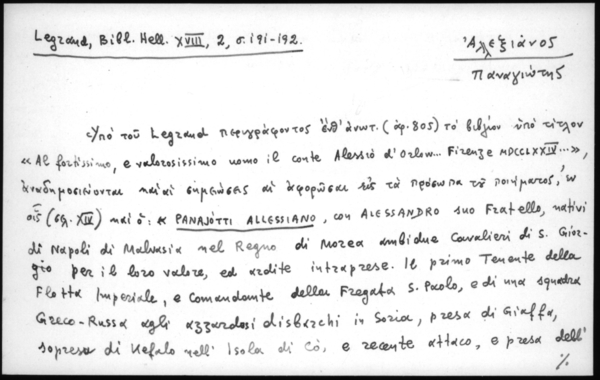 Legrand, Bibl. Hell. XVIII, 2, σ. 191-192.
Ἀλεξιάνος
Παναγιώτης
Ὑπὸ τοῦ Legrand περιγράφοντος ἐνθ' ἀνωτ. (ἀρ. 805) τὸ βιβλίον ὑπὸ τίτλον
«Al fortissimo, e valorosissimo uomo il conte Alessio d'Orlow... Firenze MDCCLXXIV...»,
ἀναδημοσιεύονται καὶ αἱ σημειώσεις αἱ ἀφορῶσαι εἰς τὰ πρόσωπα τοῦ ποιήματος, ἐν
οἷς (σελ. XIV) καὶ ὁ: « PANAJOTTI ALLESSIANO, con ALESSANDRO suo Fratello, nativi
di Napoli di Malvasia nel Regno di Morea ambidue Cavalieri di S. Gior-
gio per il loro valore, ed ardite intraprese. Il primo Tenente della
Flotta Imperiale, e Comandante della Fregata S. Paolo, e di una squadra
Greco-Russa agli azzardosi disbarchi in Soria, presa di Giaffa,
sopresa di Kefalo nell' Isola di Cò, e recente attaco, e presa dell'
%